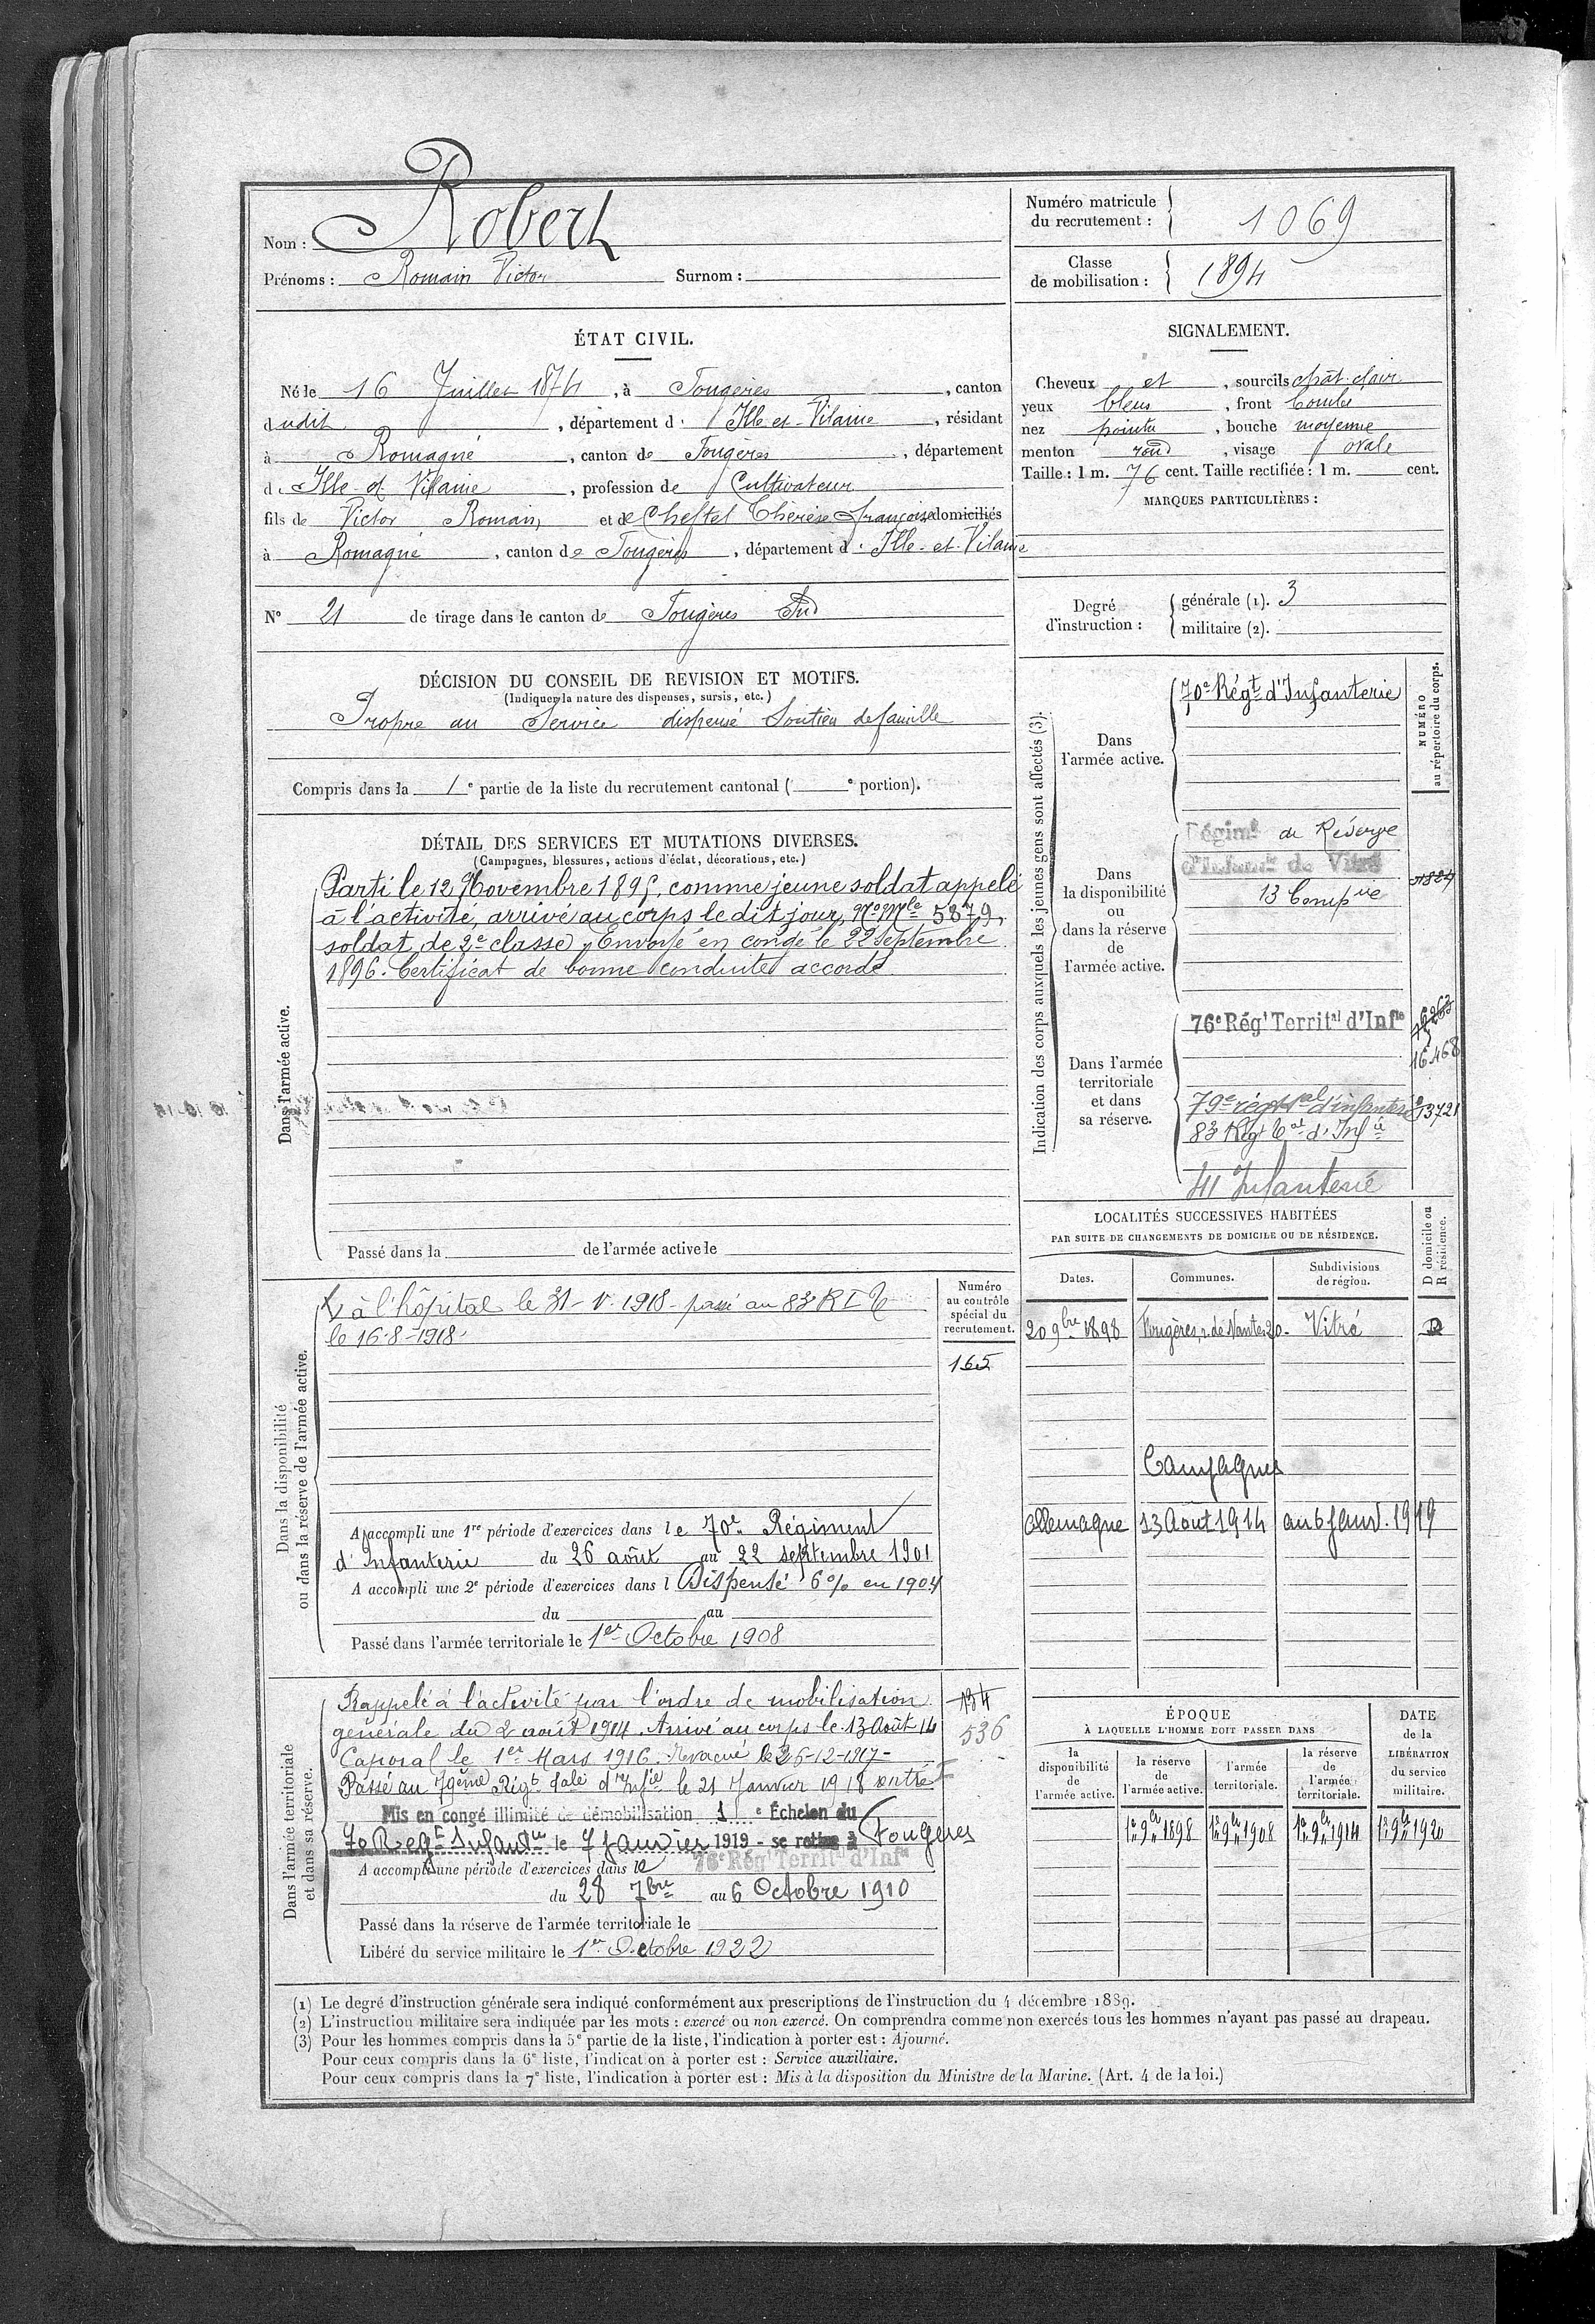 Nom : Robert
Prénoms : Romain Victor Surnom :
Numéro matricule
du recrutement : 1069
Classe
de mobilisation : 1894
ÉTAT CIVIL.
Né le 16 Juillet 1874, à Fougères, canton
dudit, département d' Ille-et-Vilaine, résidant
à Romagné, canton de Fougères, département
d' Ille-et-Vilaine, profession de Cultivateur
fils de Victor Romain, et de Cheftel Thérèse Françoise domiciliés
à Romagné, canton de Fougères, département d' Ille-et-Vilaine
N° 21 de tirage dans le canton de Fougères Sud
SIGNALEMENT.
Cheveux et, sourcils chât. clair
yeux bleus, front bombé
nez pointu, bouche moyenne
menton rond, visage ovale
Taille : 1 m. 76 cent. Taille rectifiée : 1 m. cent.
MARQUES PARTICULIÈRES :
Degré
d'instruction :
générale (1). 3
militaire (2).
DÉCISION DU CONSEIL DE REVISION ET MOTIFS.
(Indiquer la nature des dispenses, sursis, etc.)
Propre au Service dispensé Soutien de famille
Compris dans la 1e partie de la liste du recrutement cantonal ( e portion).
DÉTAIL DES SERVICES ET MUTATIONS DIVERSES.
(Campagnes, blessures, actions d'éclat, décorations, etc.)
Dans l'armée active.
Parti le 12 Novembre 1895, comme jeune soldat appelé
à l'activité, arrivé au corps le dit jour, No Mle 5879,
soldat de 2e classe. Envoyé en congé le 22 Septembre
1896. Certificat de bonne conduite accordé
Passé dans la de l'armée active le
Indication des corps auxquels les jeunes gens sont affectés (3).
NUMÉRO
au répertoire du corps.
Dans
l'armée active.
70e Régt d'Infanterie
Dans
la disponibilité
ou
dans la réserve
de
l'armée active.
Régimt de Réserve
d'Infanie de Vitré
13 Compie
Dans l'armée
territoriale
et dans
sa réserve.
76e Régt Territal d'Infie
16.468
79e régt tal d'infanterie 13721
83e Régt Tal d'Infie
41 Infanterie
LOCALITÉS SUCCESSIVES HABITÉES
PAR SUITE DE CHANGEMENTS DE DOMICILE OU DE RÉSIDENCE.
Dates.
Communes.
Subdivisions
de région.
D domicile ou
R résidence.
20 9bre 1898 Fougères, r. de Nantes 20. Vitré D
Campagnes
Allemagne 13 Août 1914 au 6 Janv. 1919
Dans la disponibilité
ou dans la réserve de l'armée active.
Numéro
au contrôle
spécial du
recrutement.
165
à l'hôpital le 31-V-1918 - passé au 83e RIT
le 16-8-1918.
A accompli une 1re période d'exercices dans le 70e Régiment
d'Infanterie du 26 août au 22 septembre 1901
A accompli une 2e période d'exercices dans l Dispensé 6% en 1904
du au
Passé dans l'armée territoriale le 1er Octobre 1908
Dans l'armée territoriale
et dans sa réserve.
184
536
Rappelé à l'activité par l'ordre de mobilisation
générale du 2 août 1914. Arrivé au corps le 13 Août 14
Caporal le 1er Mars 1916. évacué le 26-12-1917-
Passé au 79ème Régt tal d'Infie le 21 Janvier 1918
Mis en congé illimité de démobilisation 1 e Échelon du
70 Regt Infantie le 7 Janvier 1919 - se retire à Fougères
A accompli une période d'exercices dans le 76e Régt Territal d'Infie
du 28 7bre au 6 Octobre 1910
Passé dans la réserve de l'armée territoriale le
Libéré du service militaire le 1er Octobre 1922
ÉPOQUE
À LAQUELLE L'HOMME DOIT PASSER DANS
la
disponibilité
de
l'armée active.
la réserve
de
l'armée active.
l'armée
territoriale.
la réserve
de
l'armée
territoriale.
DATE
de la
LIBÉRATION
du service
militaire.
1er 9bre 1898 1er 9bre 1908 1er 9bre 1914 1er 9bre 1920
(1) Le degré d'instruction générale sera indiqué conformément aux prescriptions de l'instruction du 4 décembre 1889.
(2) L'instruction militaire sera indiquée par les mots : exercé ou non exercé. On comprendra comme non exercés tous les hommes n'ayant pas passé au drapeau.
(3) Pour les hommes compris dans la 5e partie de la liste, l'indication à porter est : Ajourné.
Pour ceux compris dans la 6e liste, l'indication à porter est : Service auxiliaire.
Pour ceux compris dans la 7e liste, l'indication à porter est : Mis à la disposition du Ministre de la Marine. (Art. 4 de la loi.)